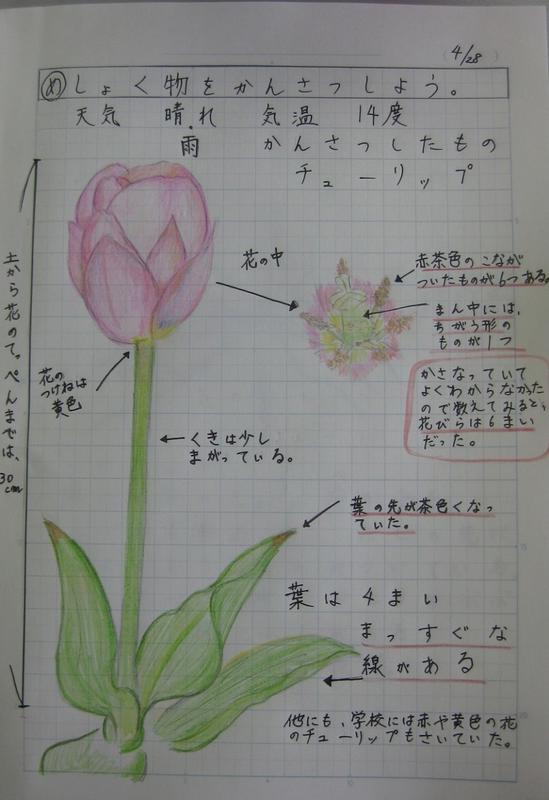 4/28
め しょく物をかんさつしよう。
天気 晴れ 気温 14度
雨 かんさつしたもの
チューリップ
土から花のてっぺんまでは、30cm
花の中
赤茶色のこなが
ついたものが6つある。
まん中には、
ちがう形の
ものが1つ
かさなっていて
よくわからなかった
ので数えてみると、
花びらは6まい
だった。
花の
つけねは
黄色
くきは少し
まがっている。
葉の先が茶色くなっ
ていた。
葉は4まい
まっすぐな
線がある
他にも、学校には赤や黄色の花
のチューリップもさいていた。